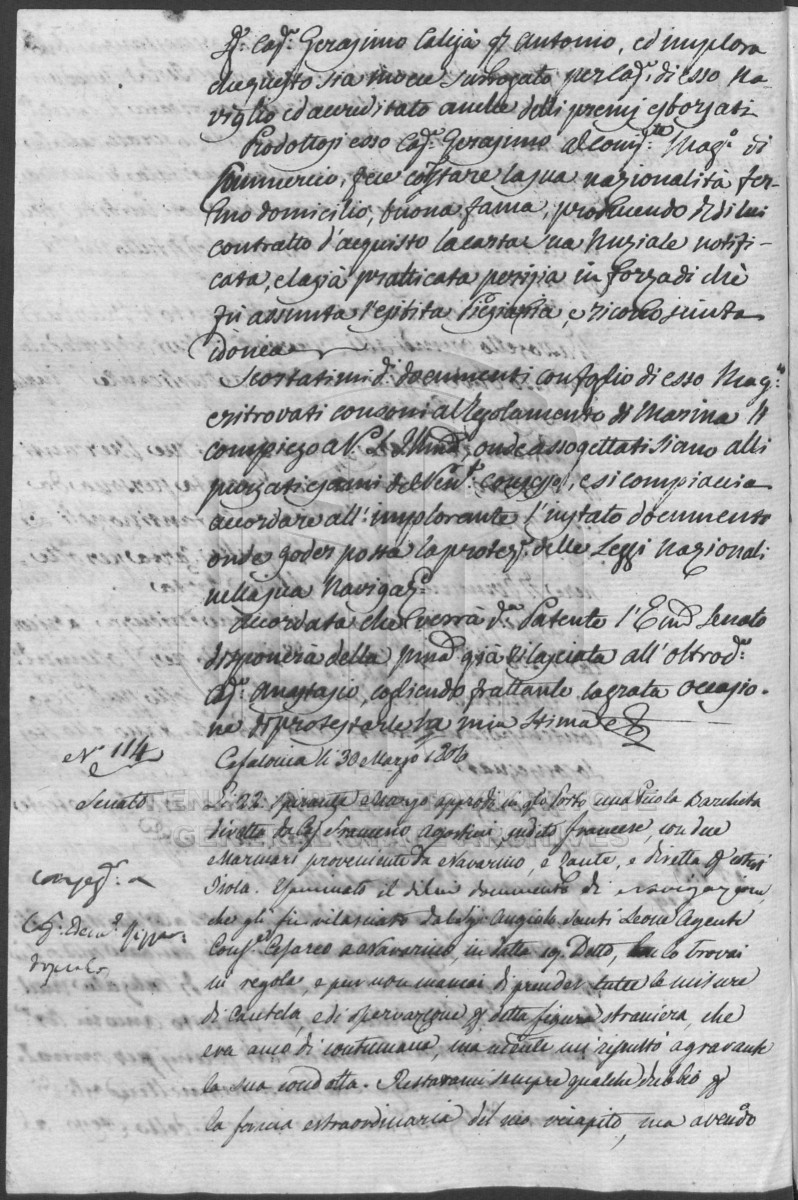 Sr. Capn. Gerasimo Caligà qm Antonio, ed implora
che questo sia meco surrogato per Capn. di esso Na-
viglio ed accreditato anche delli premj esborsati.
Prodottosi esso Capn. Gerasimo al Compte. Mago. di
Commercio, fece costare la sua nazionalità fer-
mo domicilio, buona fama, producendo di lui
contratto d'acquisto la carta una Nuziale notifi-
cata, e la già pratticata perizia in forza di che
fù assunta l'esibita Piegiaria, e riconosciuta
idonea
Scortatimi di. documenti con foglio di esso Mago.
e ritrovati consoni al Regolamento di Marina li
compiego a V. onde assogettati siano alli
purgati esami del Vento. consesso, e si compiaccia
accordare all'implorante l'instato documento
onde goder possa la protezn. delle Leggi Nazionali
nella sua Navigazn.
Accordata che verrà da. Patente l'Ecmo Senato
disponerà della pmà già rilasciata all'oltrodo.
Capn. Anastasio, cogliendo frattanto la grata occasio-
ne di protestarle la mia stima
No 114
Cefalonia li 30 Marzo 1806
Senato
Li 22 spirante Marzo approdò in qto Porto una Picola Barchetta
diretta da Cap Agostini sudito francese, con due
Marinari proveniente da Navarino, e Zante, e diretta pr questa
Isola. Esaminato il di lui documento di navigazione,
che gli fu rilasciato dal Sigr Angiolo Santi Leone Agente
Cesareo a Navarino, in data 19 Detto, lo trovai
in regola, e pur non mancai di prender tutte le misure
di Cautela, e di osservazione pr detta figura straniera, che
era anco di contumacia, ma niente mi risultò agravante
la sua condotta. Restavami sempre qualche dubbio pr
la forma estraordinaria del suo recapito, ma avendo
TENERAL STATE ARCHIVES
GENERAL STATE ARCHIVES